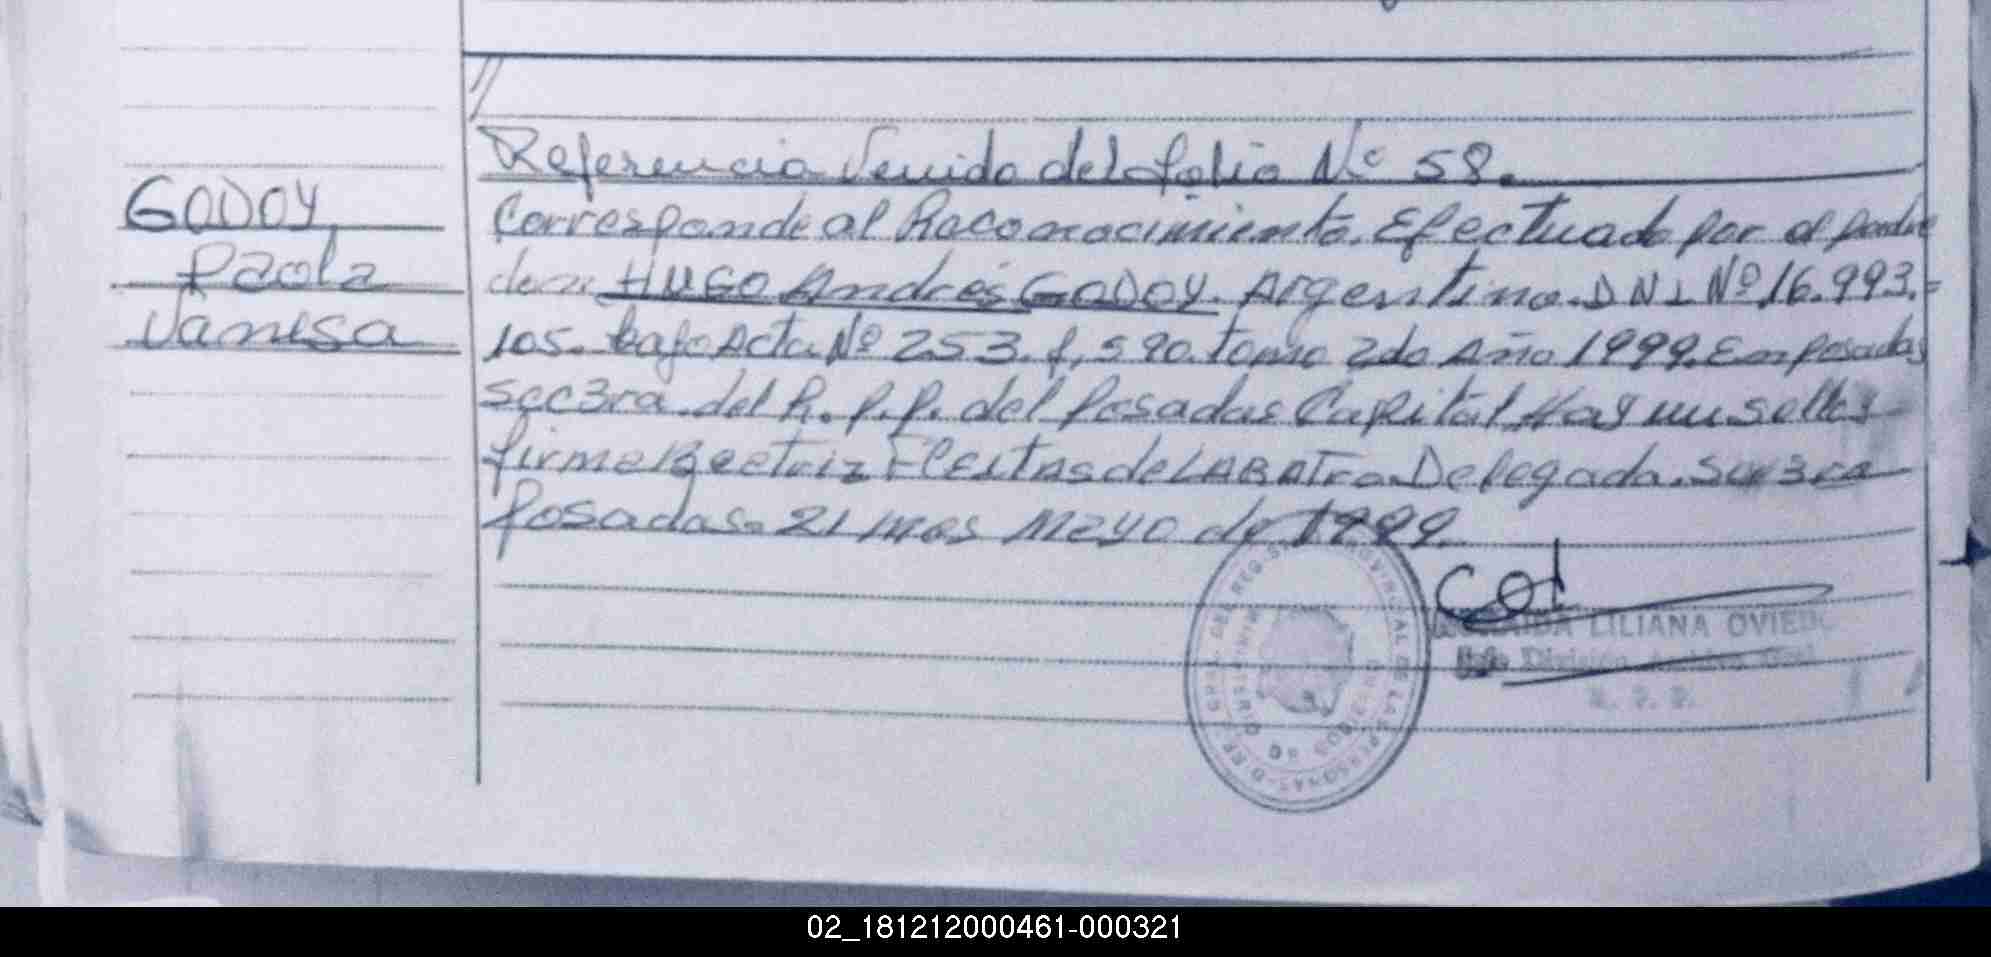 //
Referencia Venida del folio Nº 58.
GODOY
Paola
Vanesa
Corresponde al Raconocimiento. Efectuado por el padre
don HUGO Andrés GODOY. Argentino. DNI Nº 16.993.=
105. bajo Acta Nº 253. f, 590. tomo 2do Año 1999. En posadas
Sec 3ra. del R. P. P. del Posadas Capital Hay un sello y
firma Beatriz FLEITAS de LABATTO Delegada. Sec 3ra
Posadas 21 mes Mayo de 1999.
LILIANA OVIEDO
Jefe División Archivo Gral
R. P. P.
02_181212000461-000321